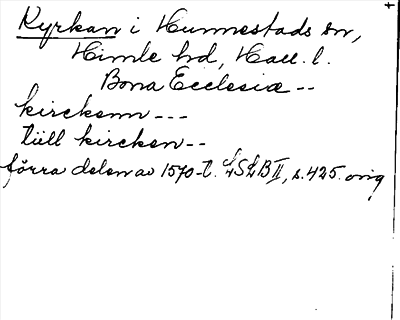 Kyrkan i Hunnestads sn,
Himle hd, Hall. l.
Bona Ecclesiæ --
kirckenn ---
tüll kircken --
förra delen av 1570-t. LSLB II, s. 425. orig